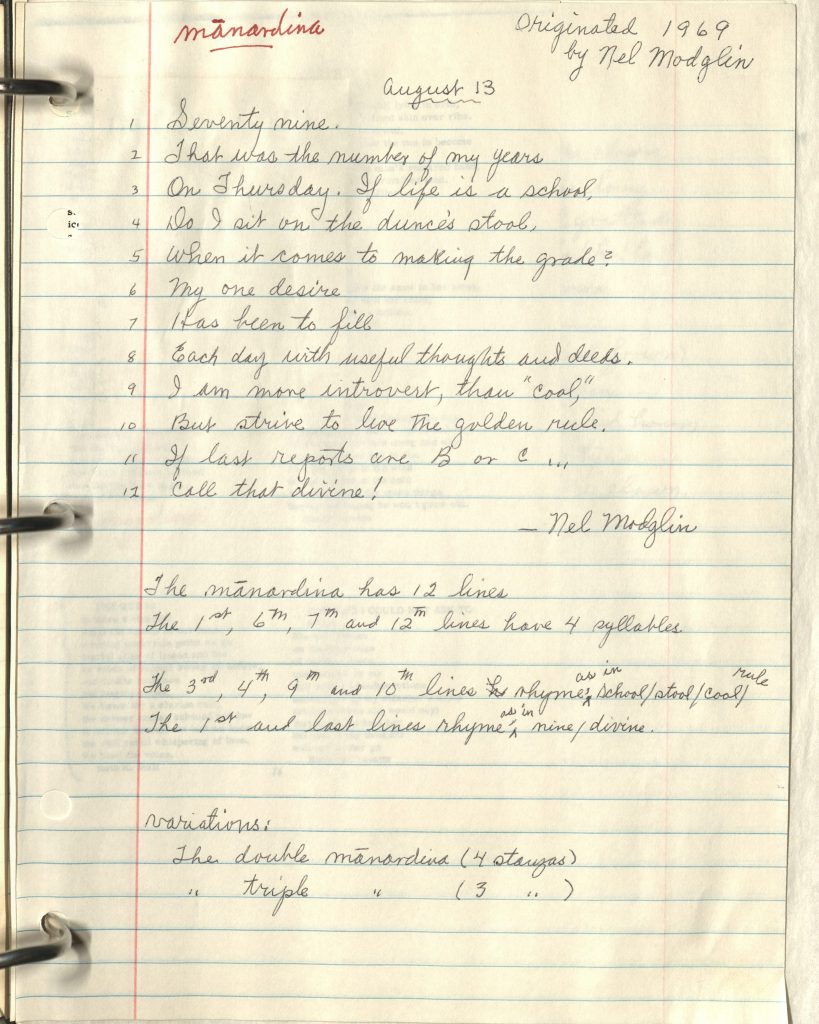 mānardina
Originated 1969
by Nel Modglin
August 13
1 Seventy nine.
2 That was the number of my years
3 On Thursday. If life is a school,
4 Do I sit on the dunce's stool,
5 When it comes to making the grade?
6 My one desire
7 Has been to fill
8 Each day with useful thoughts and deeds.
9 I am more introvert, than "cool,"
10 But strive to live the golden rule.
11 If last reports are B or C ...
12 Call that divine!
— Nel Modglin
The mānardina has 12 lines
The 1st, 6th, 7th and 12th lines have 4 syllables
The 3rd, 4th, 9th and 10th lines rhyme, as in school/stool/cool/rule
The 1st and last lines rhyme, as in nine/divine.
s.
ic
variations:
The double mānardina (4 stanzas)
" triple " (3 " )